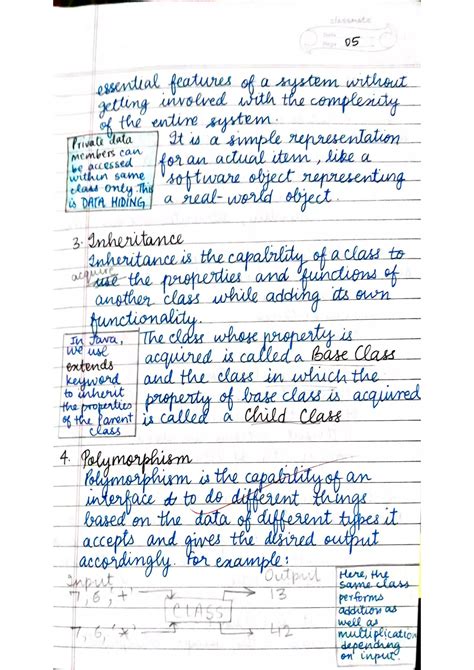 classmate
Date
Page 05
essential features of a system without
getting involved with the complexity
of the entire system.
Private data
members can
be accessed
within same
class only. This
is DATA HIDING
It is a simple representation
for an actual item, like a
software object representing
a real-world object.
3. Inheritance
Inheritance is the capability of a class to
acquire
use the properties and functions of
another class while adding its own
functionality.
In Java,
we use
extends
keyword
to inherit
the properties
of the Parent
class
The class whose property is
acquired is called a Base Class
and the class in which the
property of base class is acquired
is called a Child Class
4. Polymorphism
Polymorphism is the capability of an
interface to to do different things
based on the data of different types it
accepts and gives the desired output
accordingly. For example:
Input Output
7, 6, '+' 13
CLASS
7, 6, '*' 42
Here, the
same class
performs
addition as
well as
multiplication
depending
on input